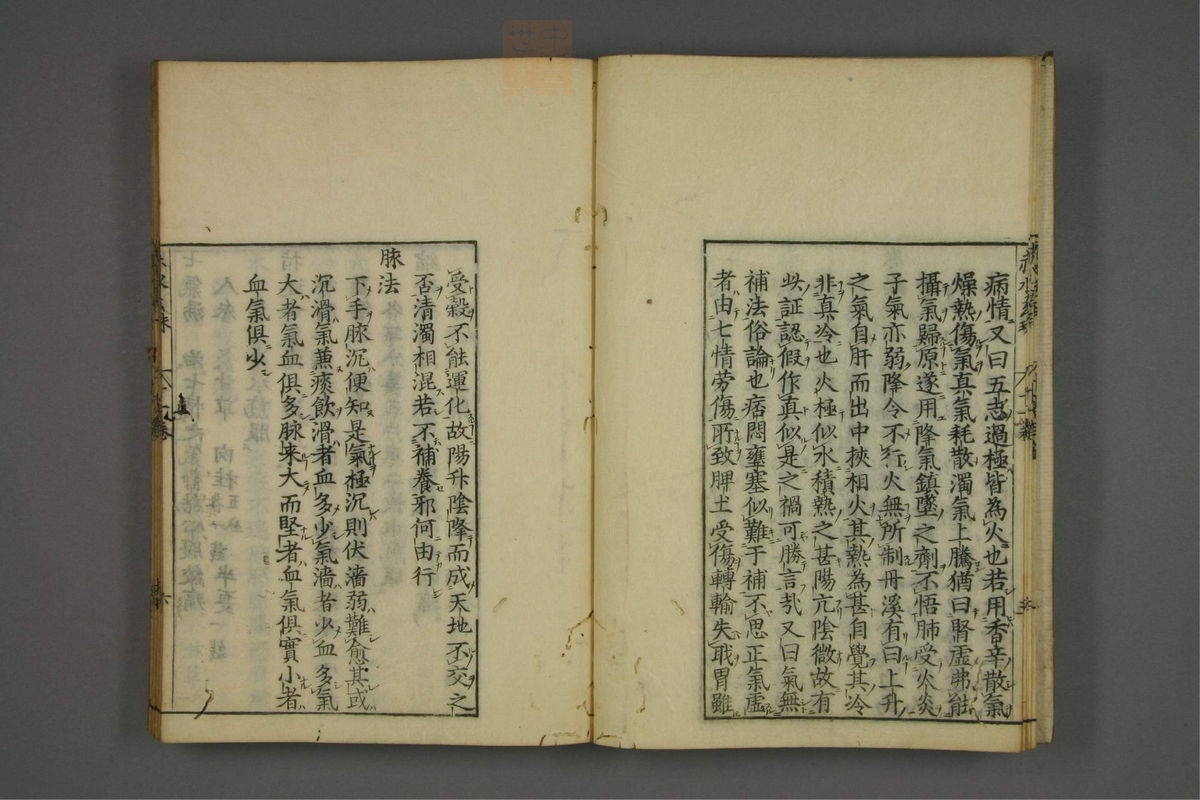 病情又曰五志過極皆為火也若用香辛散氣
燥熱傷氣真氣耗散濁氣上騰猶曰腎虛弗能
攝氣歸原遂用降氣鎮墜之劑不悟肺受火炎
子氣亦弱降令不行火無所制丹溪有曰上升
之氣自肝而出中挾相火其熱為甚自覺其冷
非真冷也火極似水積熱之甚陽亢陰微故有
此証認假作真似是之禍可勝言哉又曰氣無
補法俗論也痞悶壅塞似難于補不思正氣虛
者由七情勞傷所致脾土受傷轉輸失職胃雖
受穀不能運化故陽升陰降而成天地不交之
否清濁相混若不補養邪何由行
脉法
下手脉沉便知是氣極沉則伏濇弱難愈其或
沉滑氣兼痰飲滑者血多少氣濇者少血多氣
大者氣血俱多脉来大而堅者血氣俱實小者
血氣俱少